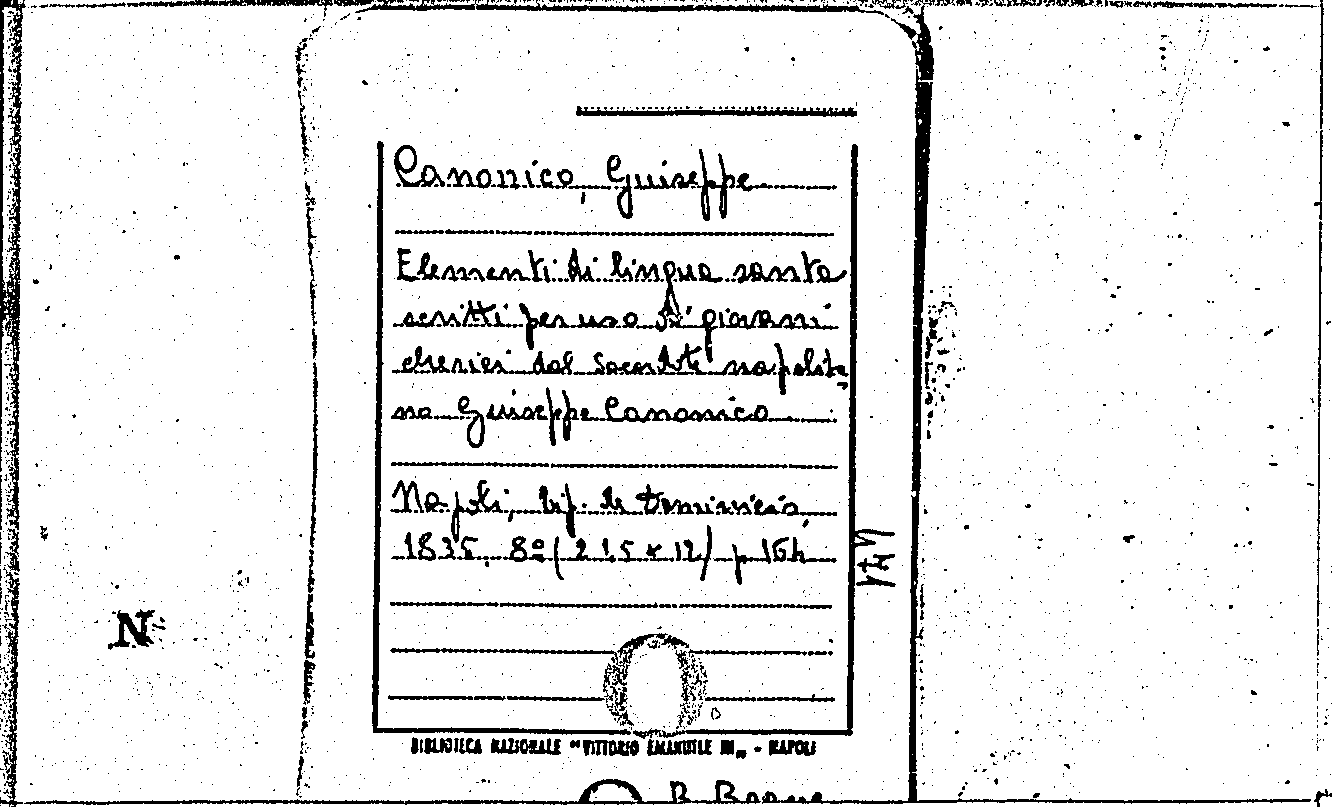 Canonico, Giuseppe
Elementi di lingua santa
scritti per uso de' giovani
chierici dal Sacerdote napolita
no Giuseppe Canonico
Napoli, tip. de Dominicis,
1835. 8º (21.5 x 12) p 164
N
BIBLIOTECA NAZIONALE "VITTORIO EMANUELE III" - NAPOLI